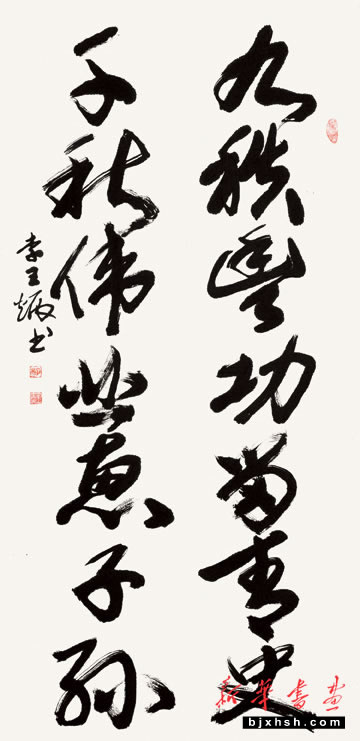 九秩豐功留青史
千秋伟业惠子孙
李王炳书
新华书画
bjxhsh.com